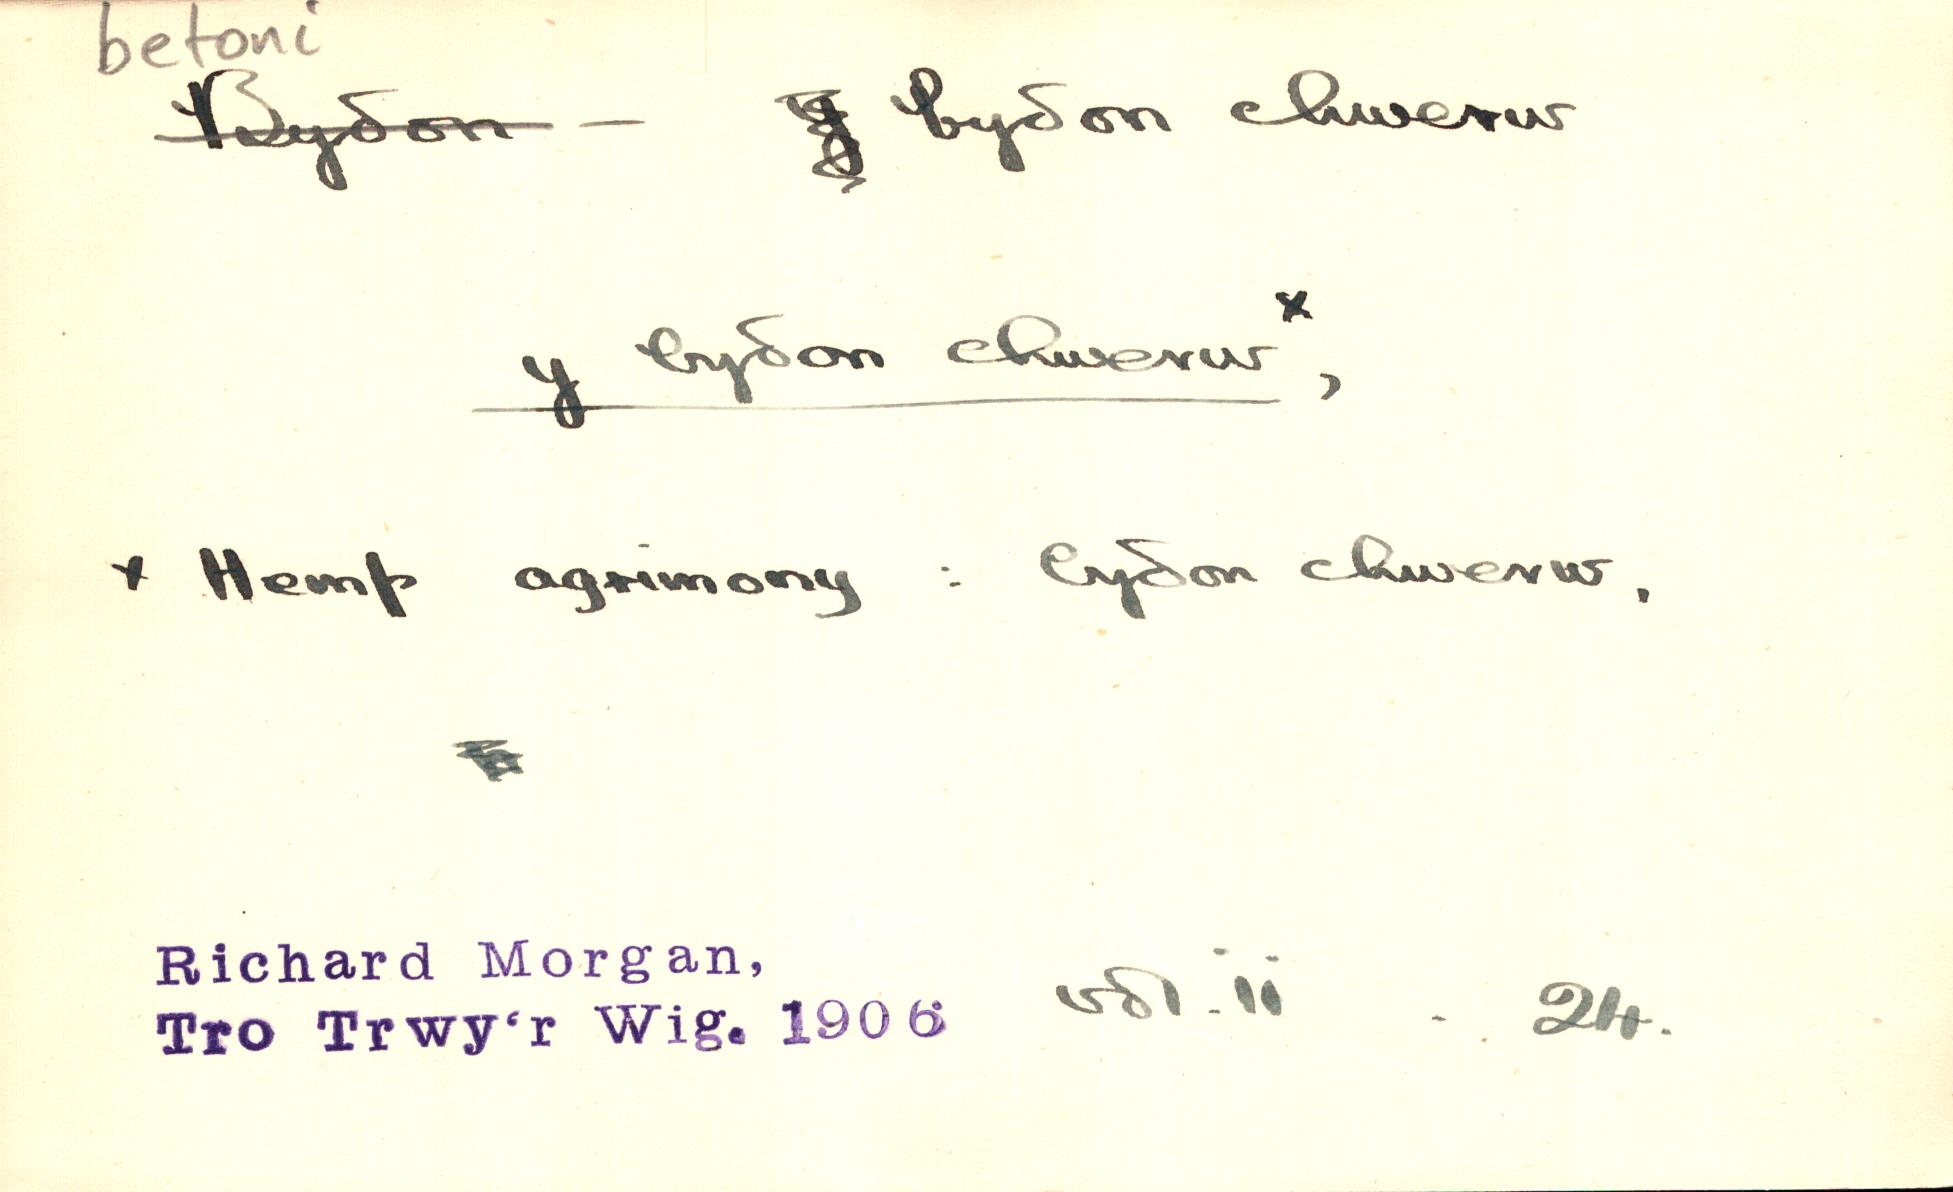 betoni
Bydon — bydon chwerw
y bydon chwerw ˣ,
x Hemp agrimony : bydon chwerw.
Richard Morgan,
Tro Trwy‘r Wig. 1906 vol. ii . 24.